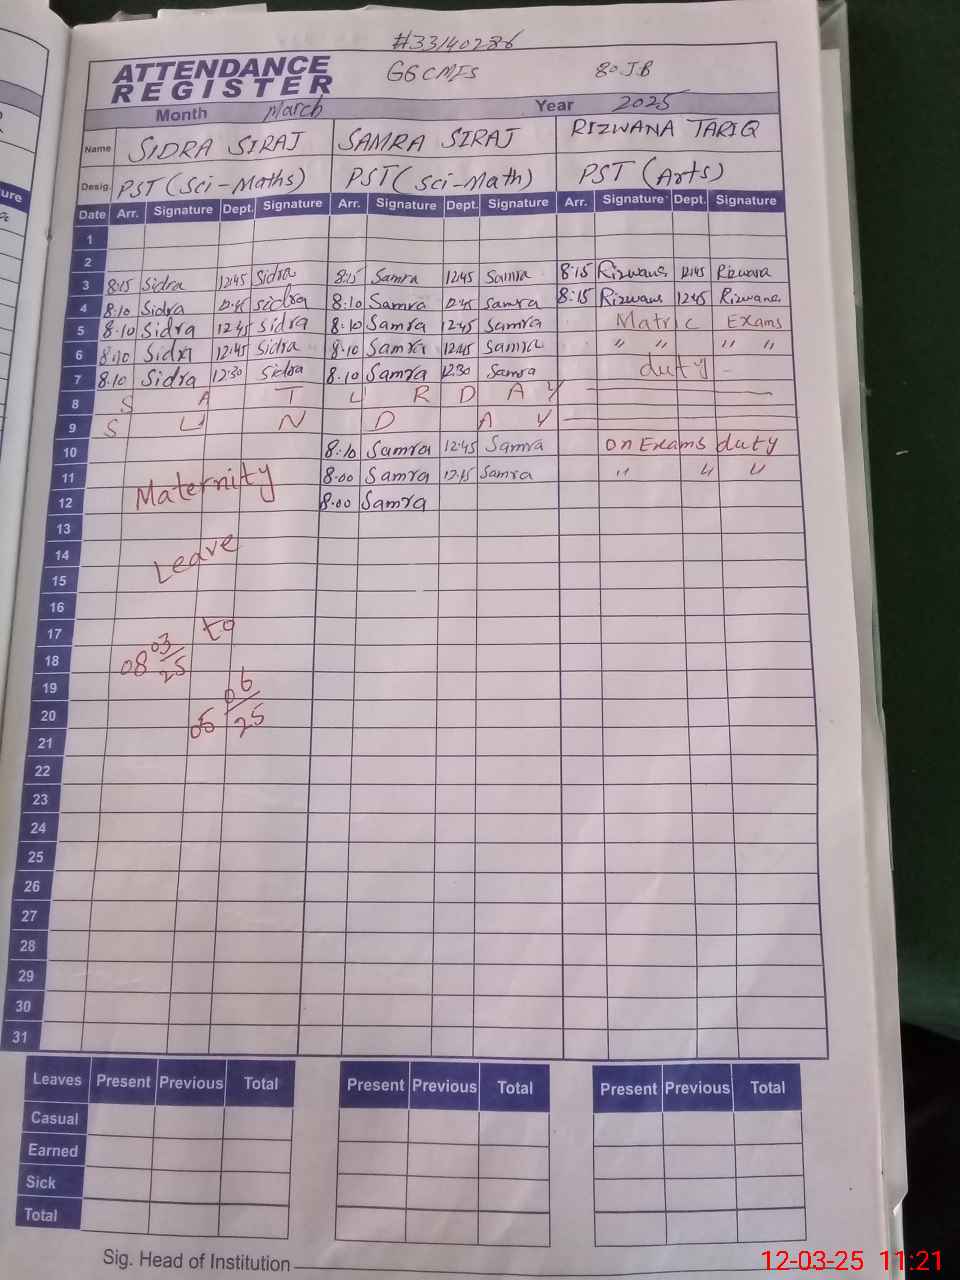 #33140286
ATTENDANCE REGISTER GGCMES 80.J.B
Month March Year 2025
Name SIDRA SIRAJ SAMRA SIRAJ RIZWANA TARIQ
Desig. PST (Sci-Maths) PST (Sci-Math) PST (Arts)
Date Arr. Signature Dept. Signature Arr. Signature Dept. Signature Arr. Signature Dept. Signature
1
2
3 8:15 Sidra 12:45 Sidra 8:15 Samra 12:45 Samra 8:15 Rizwana 12:45 Rizwana
4 8:10 Sidra 12:45 Sidra 8:10 Samra 12:45 Samra 8:15 Rizwana 12:45 Rizwana
5 8.10 Sidra 12:45 Sidra 8:10 Samra 12:45 Samra Matric Exams
6 8:10 Sidra 12:45 Sidra 8.10 Samra 12:45 Samra " " " "
7 8.10 Sidra 12:30 Sidra 8.10 Samra 12:30 Samra duty -
8 S A T U R D A Y
9 S U N D A Y
10 8:10 Samra 12:45 Samra on Exams duty
11 Maternity 8.00 Samra 12:45 Samra " " "
12 8.00 Samra
13
14 Leave
15
16
17 to
18 08 03/25
19
20 05 06/25
21
22
23
24
25
26
27
28
29
30
31
Leaves Present Previous Total Present Previous Total Present Previous Total
Casual
Earned
Sick
Total
Sig. Head of Institution
12-03-25 11:21